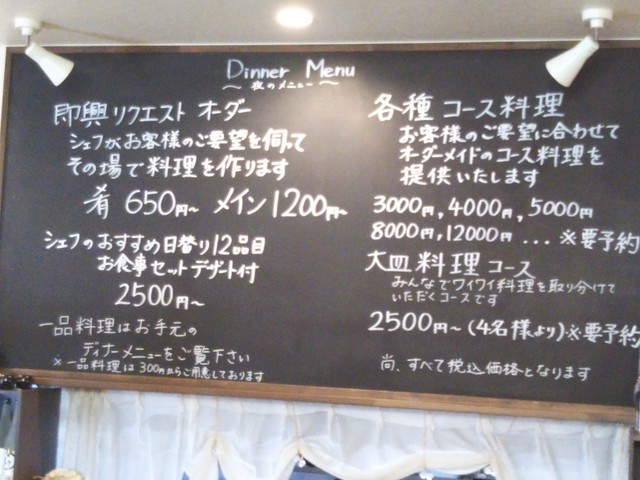 Dinner Menu
～夜のメニュー～
即興リクエスト オーダー
シェフがお客様のご要望を伺って
その場で料理を作ります
肴 650円～ メイン1200円～
シェフのおすすめ日替り12品目
お食事セットデザート付
2500円～
一品料理はお手元の
ディナーメニューをご覧下さい
※一品料理は300円からご用意しております
各種コース料理
お客様のご要望に合わせて
オーダーメイドのコース料理を
提供いたします
3000円,4000円,5000円
8000円,12000円...※要予約
大皿料理コース
みんなでワイワイ料理を取り分けて
いただくコースです
2500円～(4名様より)※要予約
尚、すべて税込価格となります